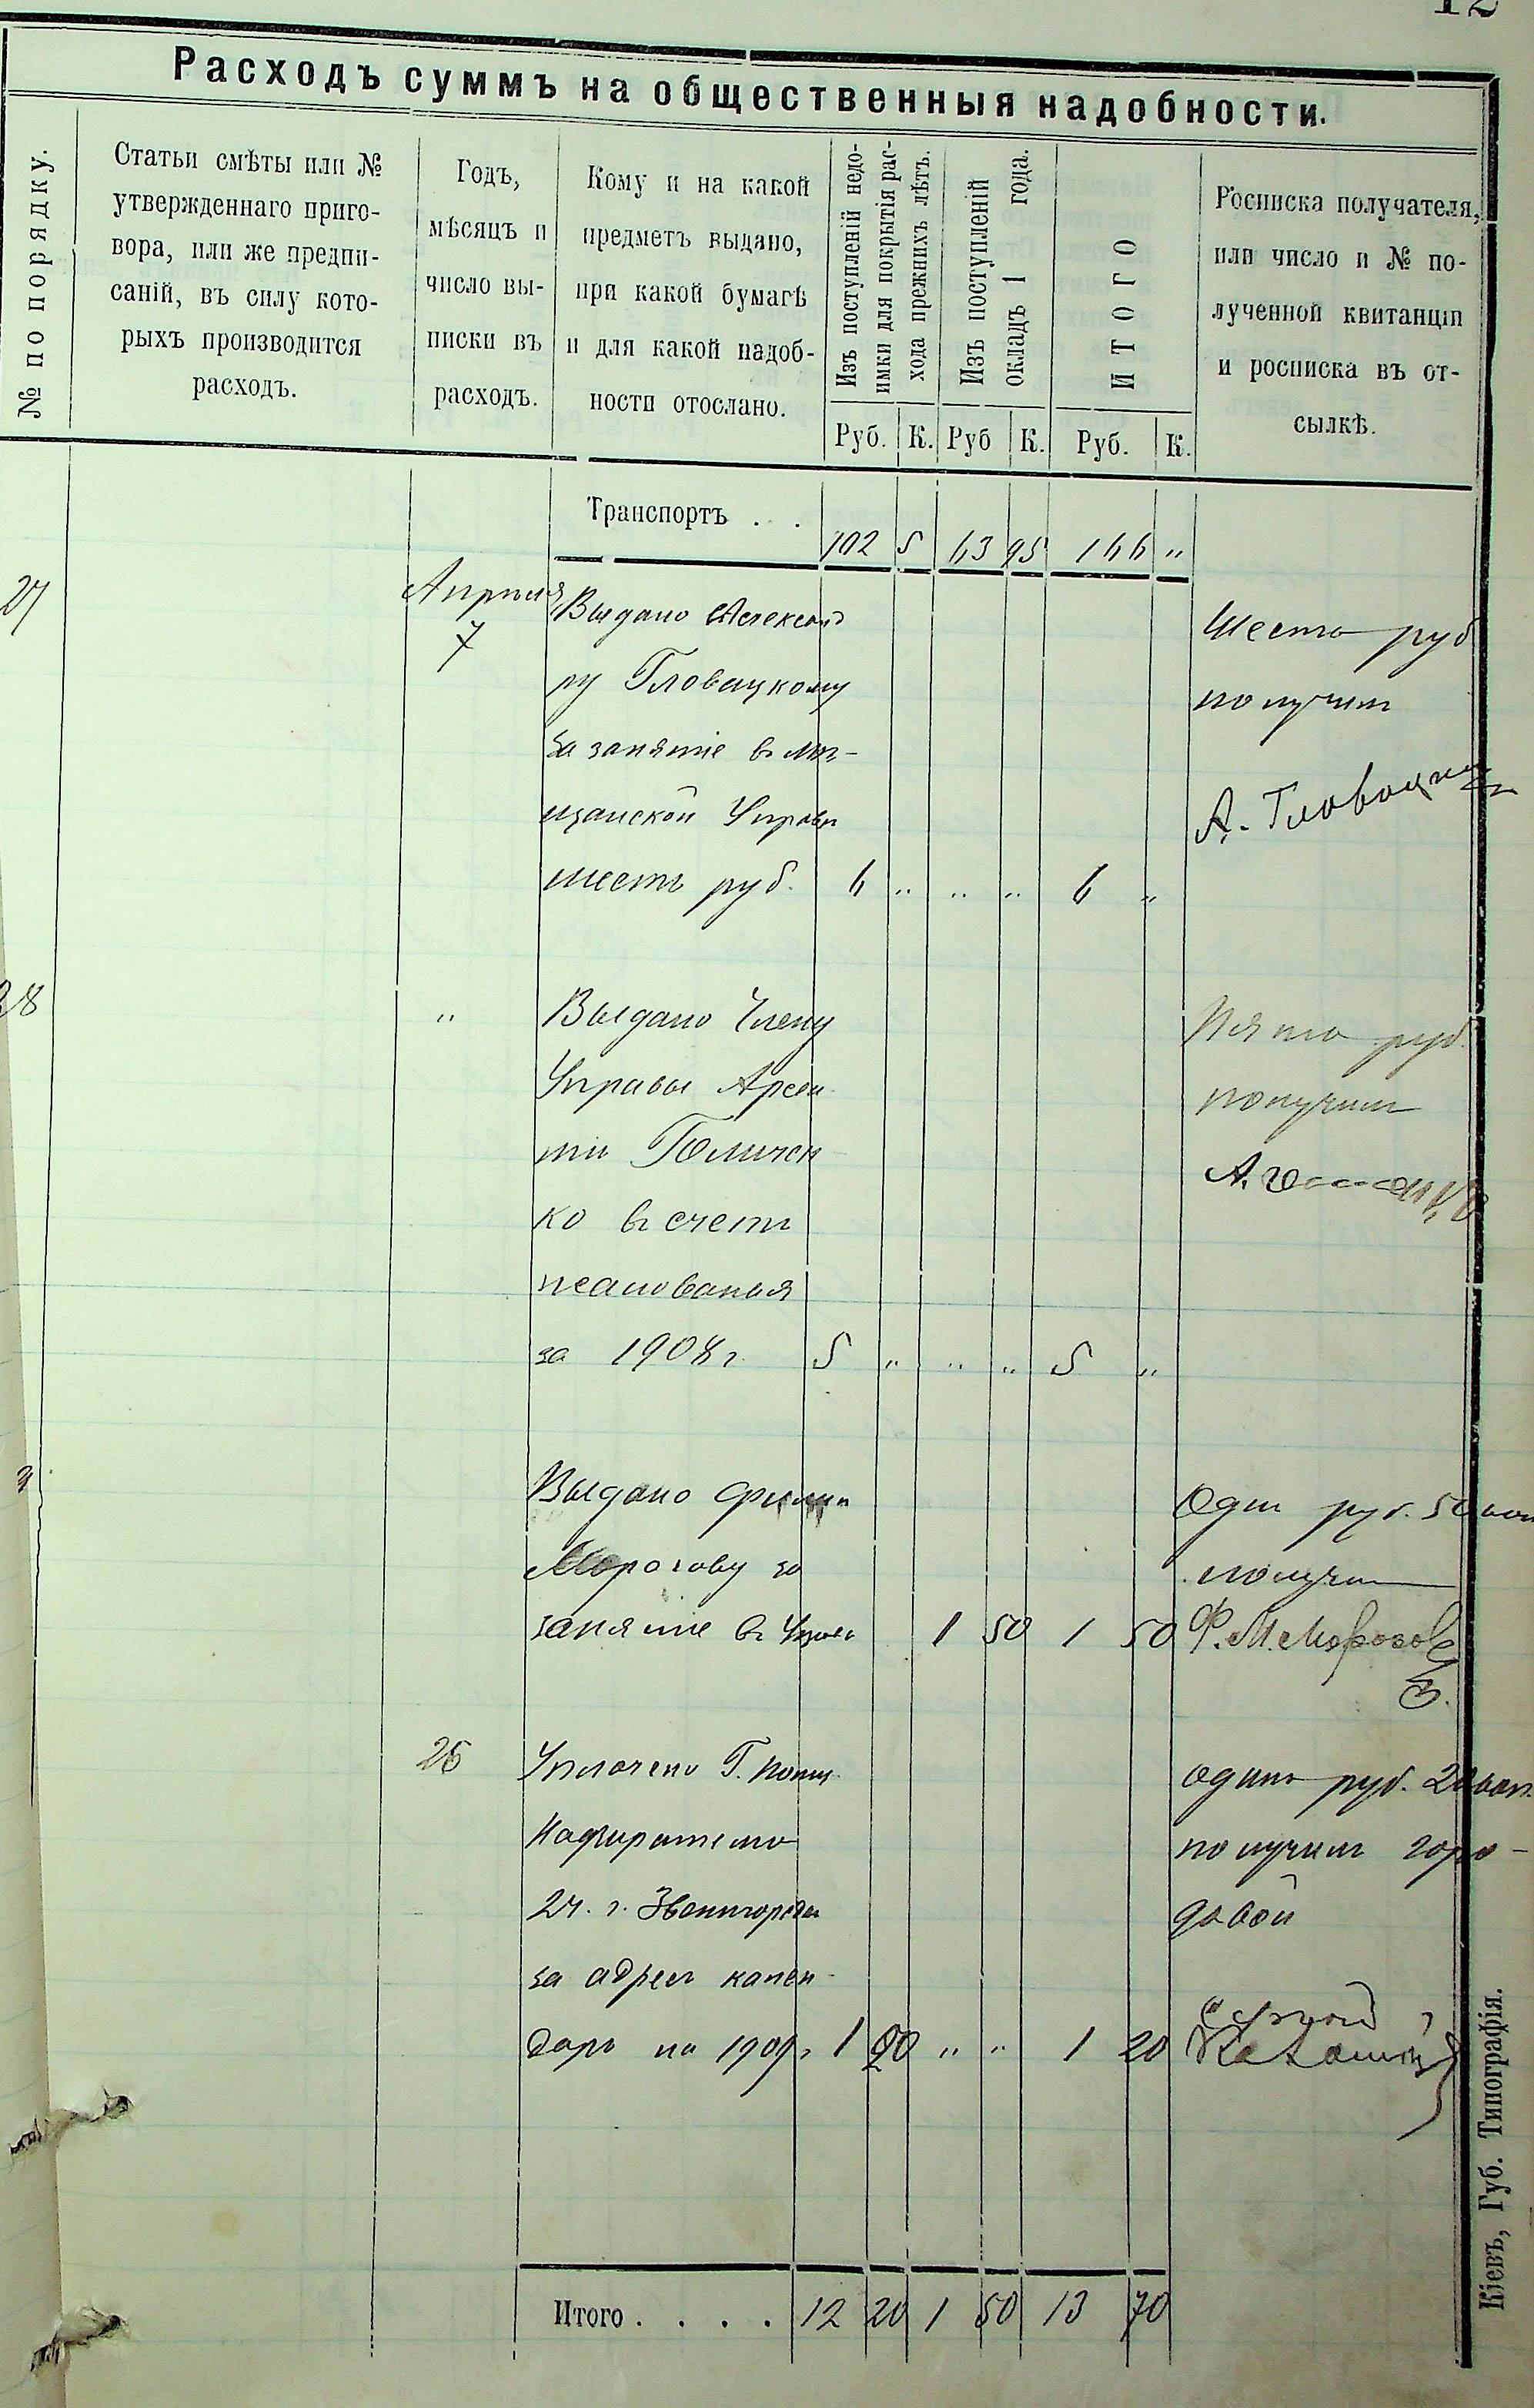 12
Расходъ суммъ на общественныя надобности.
№ по порядку.
Статьи смѣты или №
утвержденнаго приго-
вора, или же предпи-
саній, въ силу кото-
рыхъ производится
расходъ.
Годъ,
мѣсяцъ и
число вы-
писки въ
расходъ.
Кому и на какой
предметъ выдано,
при какой бумагѣ
и для какой надоб-
ности отослано.
Изъ поступленій недо-
имки для покрытія рас-
хода прежнихъ лѣтъ.
Изъ поступленій
окладъ 1 года.
ИТОГО
Росписка получателя,
или число и № по-
лученной квитанціи
и росписка въ от-
сылкѣ.
Руб. К. Руб К. Руб. К.
Транспортъ . . 102 5 63 95 166 „
27 Апрѣля 7 Выдано Александ
ру Гловацкому
за занятіе въ мѣ-
щанской Управѣ
шесть руб. 6 „ „ „ 6 „
Шесть руб
получилъ
А. Гловацкій
28 „ Выдано Члену
Управы Арсен
тію Голичен
ко въ счетъ
жалованья
за 1908 г. 5 „ „ „ 5 „
Пять руб.
получилъ
Выдано Филип
Морозову за
занятіе въ Управ 1 50 1 50
Один руб. 50 коп
получил
Ф. М. Морозов
26 Уплочено Г. Полиц.
Надзирателю
2 ч. г. Звенигородки
за адресъ кален-
дарь на 1909 г 1 20 „ „ 1 20
один руб. 20 коп.
получилъ горо-
довой
Итого . . . . 12 20 1 50 13 70
Кіевъ, Губ. Типографія.